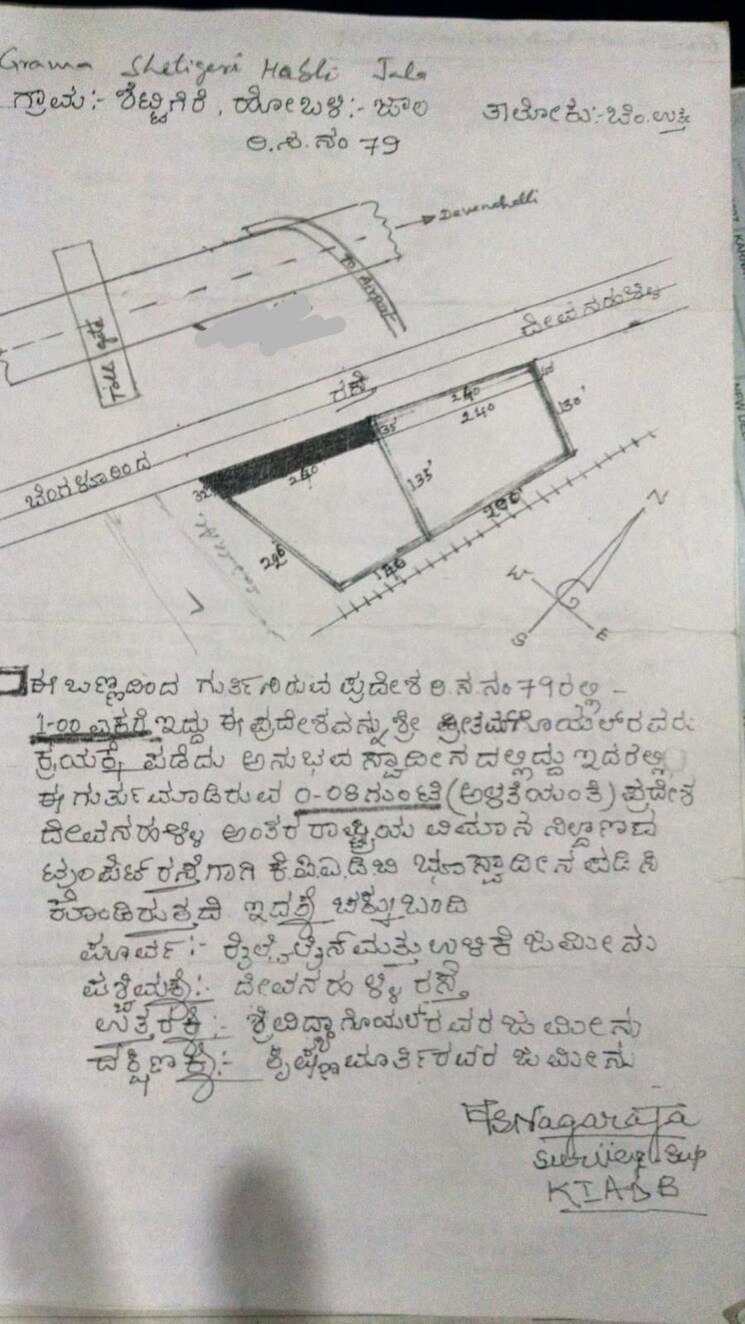 Grama Shetigeri Hobli Jala
ಗ್ರಾಮ:- ಶೆಟ್ಟಿಗೆರೆ, ಹೋಬಳಿ:- ಜಾಲ ತಾಲೋಕು:- ಬೆಂ.ಉತ್ತರ
ರಿ.ಸ.ನಂ 79
Devenahalli
To Airport
Toll gate
ದೇವನಹಳ್ಳಿ
ರಸ್ತೆ
ಬೆಂಗಳೂರಿಂದ
240
240
130'
35'
135'
240
32'
296
290'
146
N
W
S
E
ಈ ಬಣ್ಣದಿಂದ ಗುರ್ತಿಸಿರುವ ಪ್ರದೇಶ ರಿ.ಸ.ನಂ 79ರಲ್ಲಿ -
1-00 ಎಕರೆ ಇದ್ದು ಈ ಪ್ರದೇಶವನ್ನು ಶ್ರೀ ಪ್ರೀತಮ್‌ಗೊಯಲ್‌ರವರು
ಕ್ರಯಕ್ಕೆ ಪಡೆದು ಅನುಭವ ಸ್ವಾದೀನದಲ್ಲಿದ್ದು ಇದರಲ್ಲಿ
ಈ ಗುರ್ತುಮಾಡಿರುವ 0-08 ಗುಂಟೆ (ಅಳತೆಯಂತೆ) ಪ್ರದೇಶ
ದೇವನಹಳ್ಳಿ ಅಂತರರಾಷ್ಟ್ರೀಯ ವಿಮಾನ ನಿಲ್ದಾಣದ
ಟ್ರಂಪೆಟ್ ರಸ್ತೆಗಾಗಿ ಕೆ.ಐ.ಎ.ಡಿ.ಬಿ ಭೂಸ್ವಾದೀನ ಪಡಿಸಿ
ಕೊಂಡಿರುತ್ತದೆ ಇದಕ್ಕೆ ಚಕ್ಕುಬಂದಿ
ಪೂರ್ವ:- ರೈಲ್ವೆಲೈನ್ ಮತ್ತು ಉಳಿಕೆ ಜಮೀನು
ಪಶ್ಚಿಮಕ್ಕೆ:- ದೇವನಹಳ್ಳಿ ರಸ್ತೆ
ಉತ್ತರಕ್ಕೆ:- ಶ್ರೀವಿದ್ಯಾಗೊಯಲ್‌ರವರ ಜಮೀನು
ದಕ್ಷಿಣಕ್ಕೆ:- ಕೃಷ್ಣಮೂರ್ತಿರವರ ಜಮೀನು
HSNagaraja
Survey Sup
KIADB